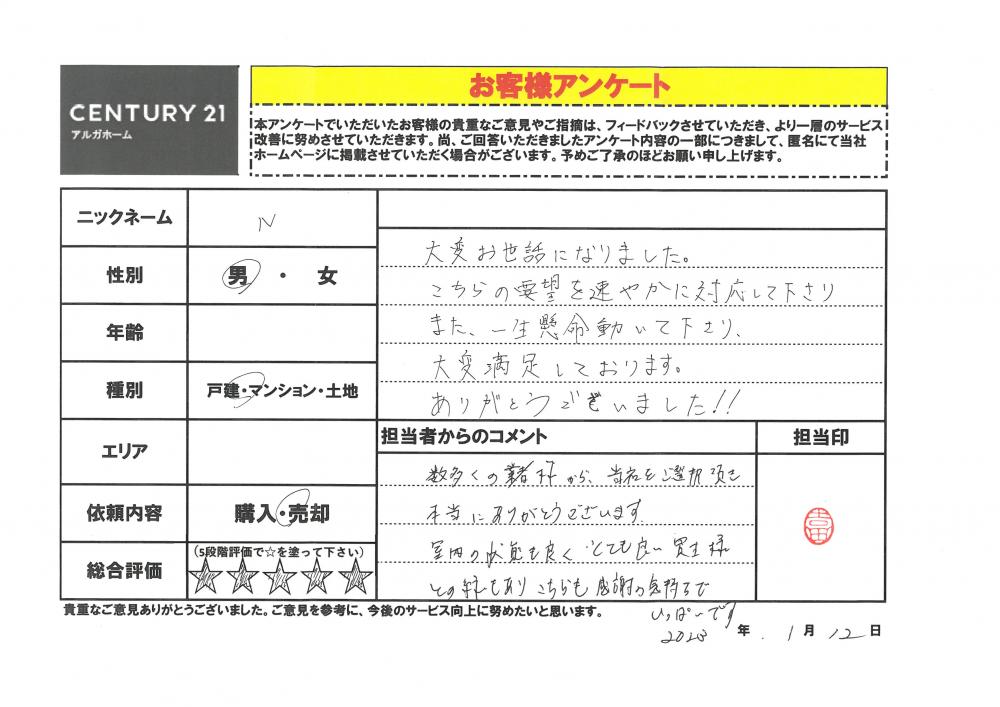 CENTURY 21
アルガホーム
お客様アンケート
本アンケートでいただいたお客様の貴重なご意見やご指摘は、フィードバックさせていただき、より一層のサービス
改善に努めさせていただきます。尚、ご回答いただきましたアンケート内容の一部につきまして、匿名にて当社
ホームページに掲載させていただく場合がございます。予めご了承のほどお願い申し上げます。
ニックネーム
N
性別
男 ・ 女
年齢
種別
戸建・マンション・土地
エリア
依頼内容
購入・売却
総合評価
(5段階評価で☆を塗って下さい)
大変お世話になりました。
こちらの要望を速やかに対応して下さり
また、一生懸命動いて下さり、
大変満足しております。
ありがとうございました!!
担当者からのコメント
担当印
数多くの業者様から、当社を選択頂き
本当にありがとうございます
室内の状態も良く とても良い買主様
との縁もあり こちらも感謝の気持ちで
いっぱいです
貴重なご意見ありがとうございました。ご意見を参考に、今後のサービス向上に努めたいと思います。
2023 年 1 月 12 日